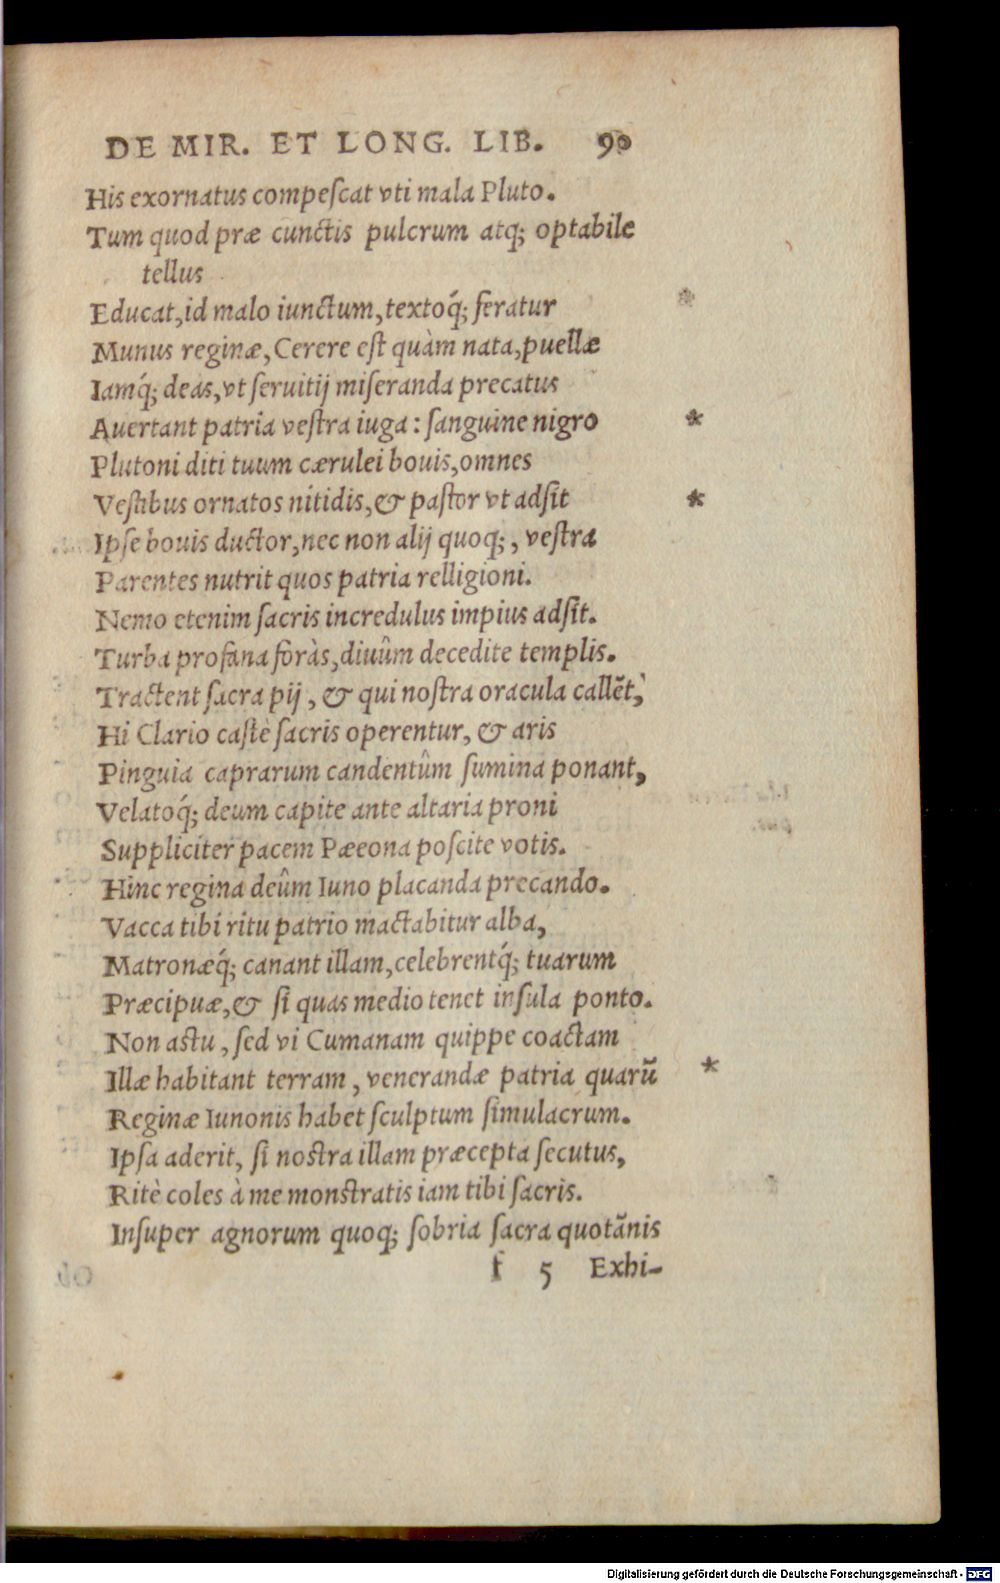 DE MIR. ET LONG. LIB. 90
His exornatus compeſcat vti mala Pluto.
Tum quod præ cunctis pulcrum atq; optabile
tellus
Educat, id malo iunctum, textoq́; feratur *
Munus reginæ, Cerere est quàm nata, puellæ
Iamq́; deas, vt ſeruitij miſeranda precatus
Auertant patria veſtra iuga: ſanguine nigro *
Plutoni diti tuum cærulei bouis, omnes
Veſtibus ornatos nitidis, & paſtor vt adſit *
Ipſe bouis ductor, nec non alij quoq;, veſtra
Parentes nutrit quos patria relligioni.
Nemo etenim ſacris incredulus impius adſit.
Turba profana foràs, diuûm decedite templis.
Tractent ſacra pij, & qui noſtra oracula callẽt,
Hi Clario caſtè ſacris operentur, & aris
Pinguia caprarum candentûm ſumina ponant,
Velatoq́; deum capite ante altaria proni
Suppliciter pacem Pæeona poſcite votis.
Hinc regina deûm Iuno placanda precando.
Vacca tibi ritu patrio mactabitur alba,
Matronæq́; canant illam, celebrentq́; tuarum
Præcipuæ, & ſi quas medio tenet inſula ponto.
Non astu, ſed vi Cumanam quippe coactam
Illæ habitant terram, venerandæ patria quarũ *
Reginæ Iunonis habet ſculptum ſimulacrum.
Ipſa aderit, ſi noſtra illam præcepta ſecutus,
Ritè coles à me monſtratis iam tibi ſacris.
Inſuper agnorum quoq; ſobria ſacra quotãnis
f 5 Exhi-
Digitalisierung gefördert durch die Deutsche Forschungsgemeinschaft - DFG